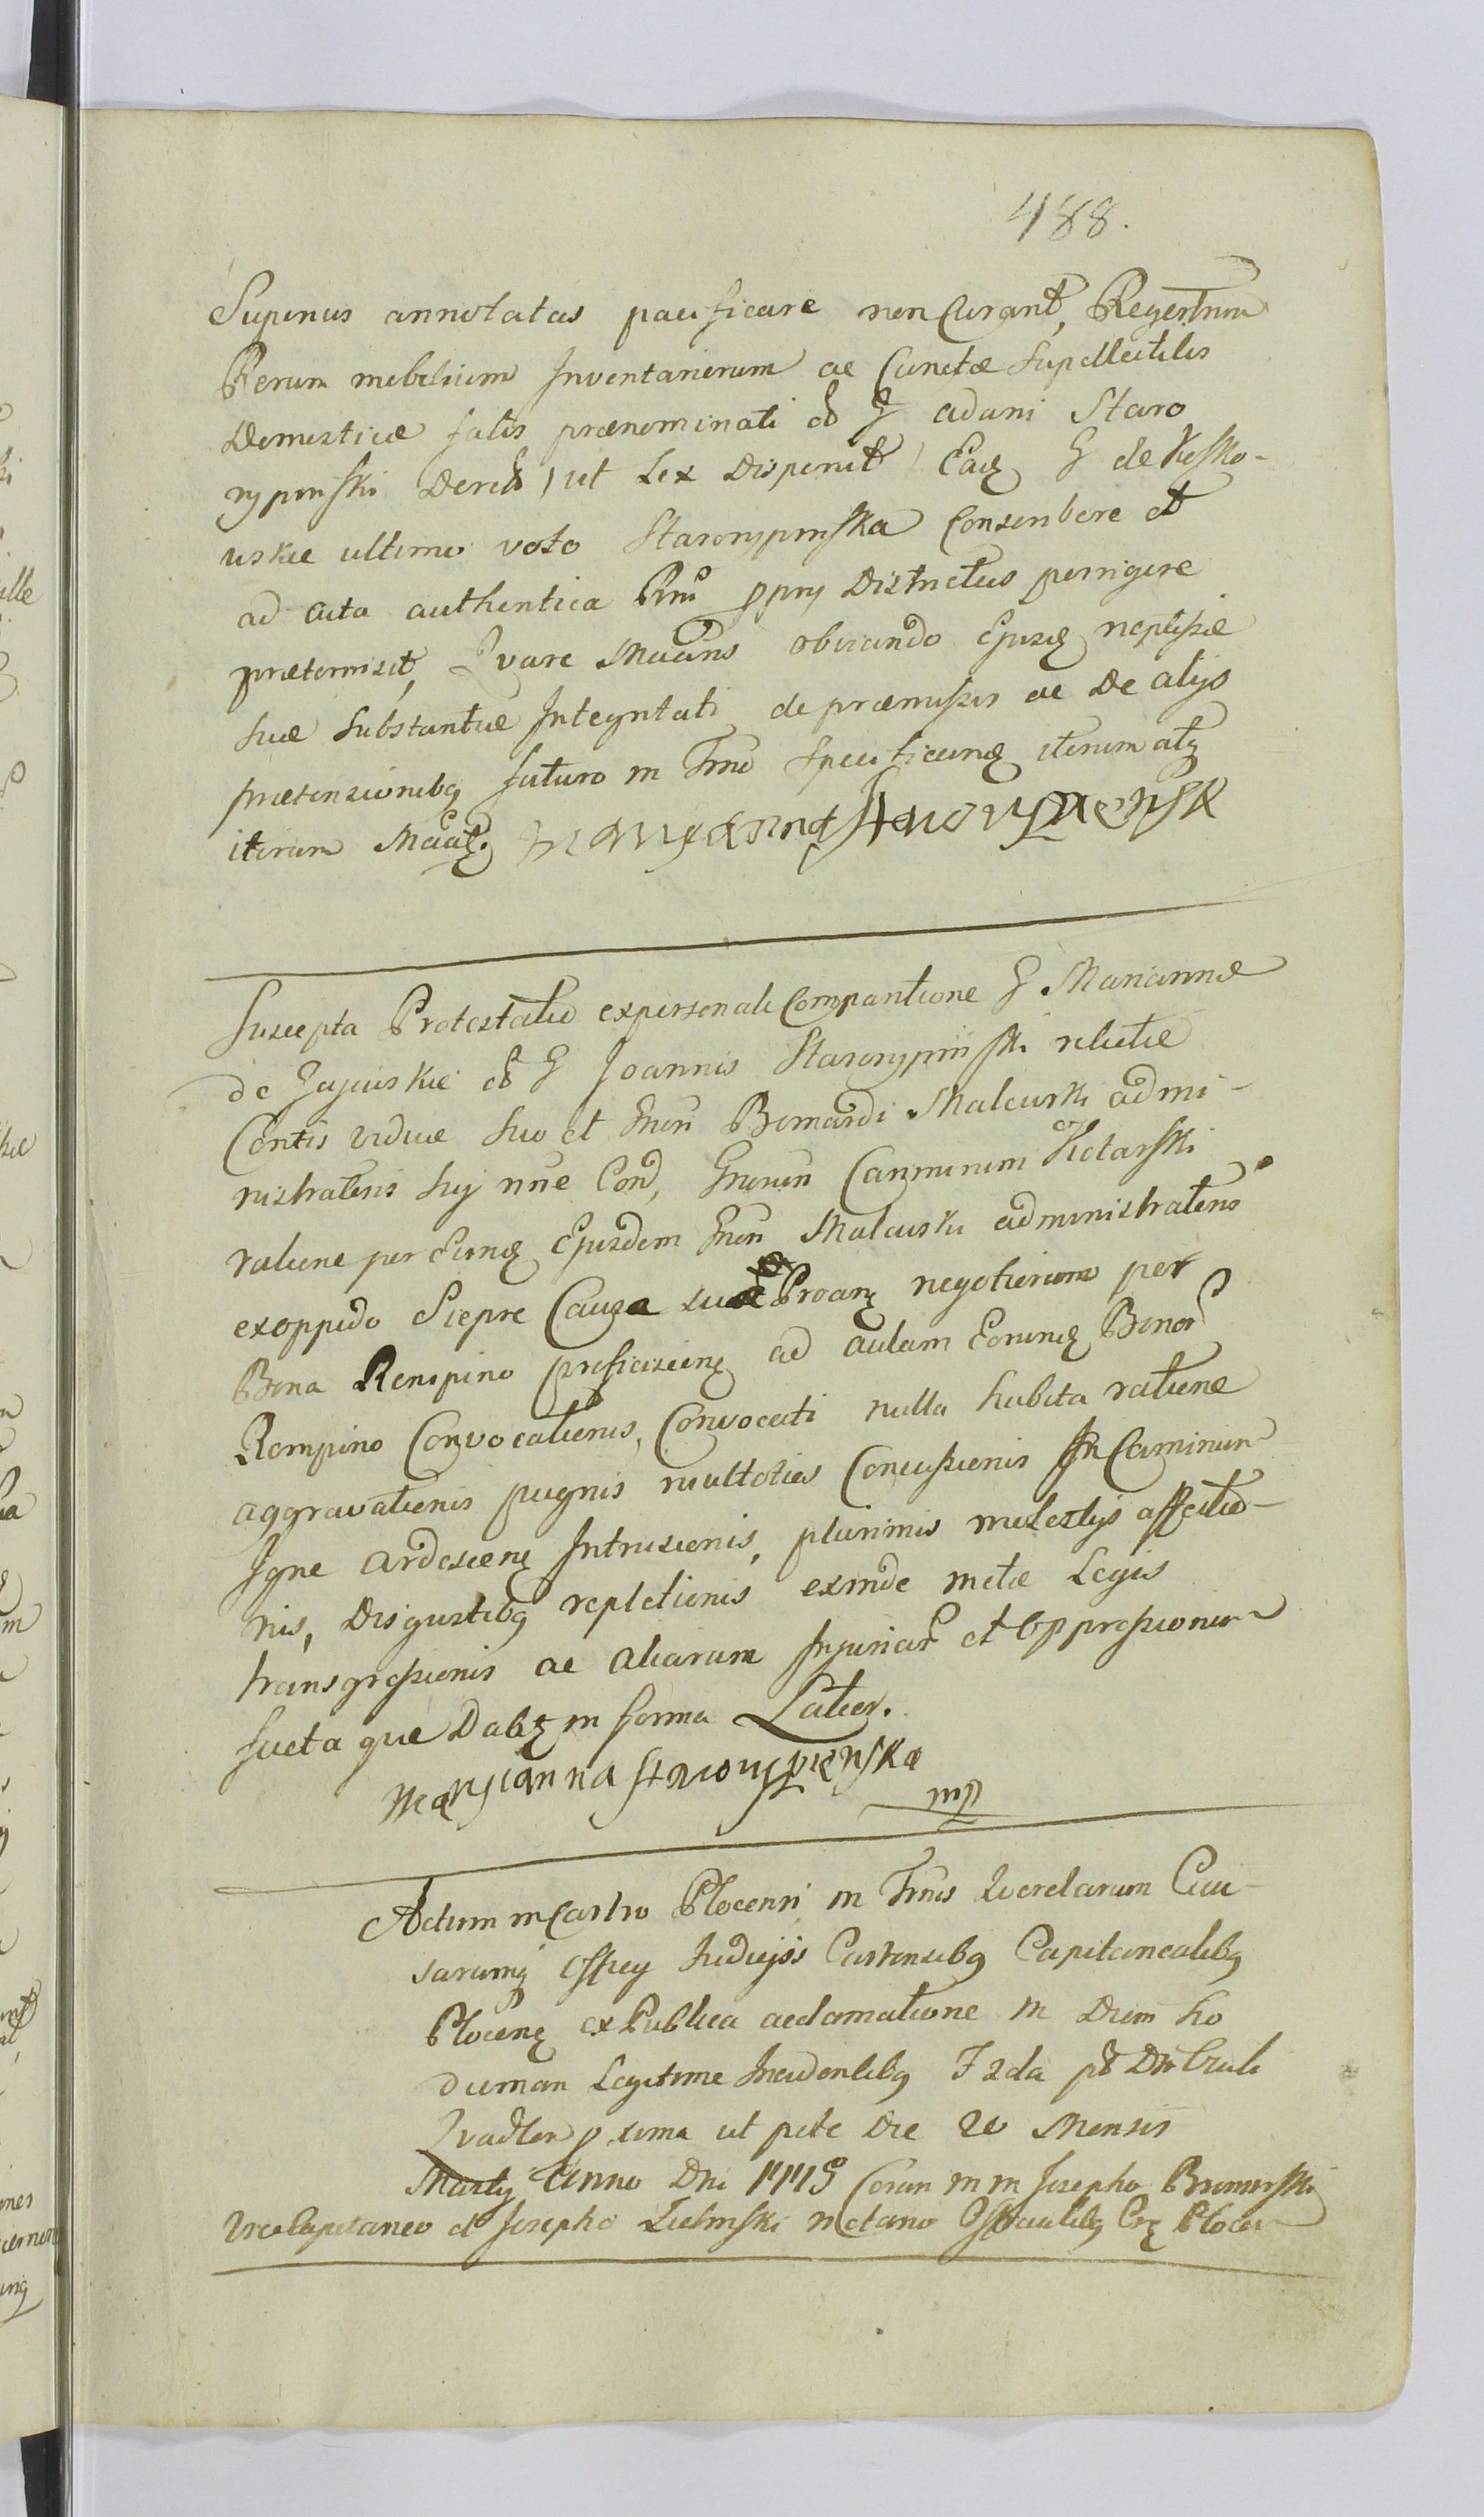 488.
Superius annotatas pacificare non Curant, Regestrum
Rerum mobilium Inventariorum ac Cunctæ Supellectilis
Domesticæ fatis prænominati ol G Adami Staro
rypinski Dered) ut Lex Disponit) Eadę G de
uskie ultimo voto Starorypinska Conscribere et
ad acta authentica Pmo ppry Districtus porrigere
prætermisit, Qvare Maans obviando Ejusdę neptißæ
suæ Substantiæ Integritati de præmißis ac De alijs
prætensionibą futuro in Tmno Specificanę iterum atą
iterum Maatę. Maryanna Starorypensk
Suscepta Protestatio ex personali Comparitione G Mariannæ
de Zajeuskie ol G Joannis Starorypinski relictæ
Contis viduæ suo et Gnen Bernardi Maleuski admi-
nistratoris suy nne Cond, Gnerum Carmimum Kotarski
ratione per Eumdę Ejusdem Gnen Maleuski administratoris
ex oppido Sieprc Causa suor Proarę negotiorum per
Bona Rempino proficiscenę ad aulam Eorundę Bonor
Rempino Convocationis, Convocati nulla habita ratione
aggravationis pugnis multoties Concußionis In Caminum
Igne ardescenę Intrusionis, plurimis molestijs affectio-
nis, Disgustibą repletionis exinde metæ Legis
transgreßionis ac aliarum Injuriar et oppreßionum
facta quæ Dabę in forma Latior.
Maryianna Starorypienska
mp
Actum in Castro Plocensi in Tmis Querelarum Cau-
sarumę Officy Judicijs Castrensibą Capitanealibą
Plocenę ex Publica acclamatione in Diem ho
diernam Legitime Incidentibą F 2da pt Dn
p xima ut pote Die 20 Mensis
Marty Anno Dni 1775 Coram m m Josepho
ViceCapitaneo et Josepho Zielinski Notario Ploce